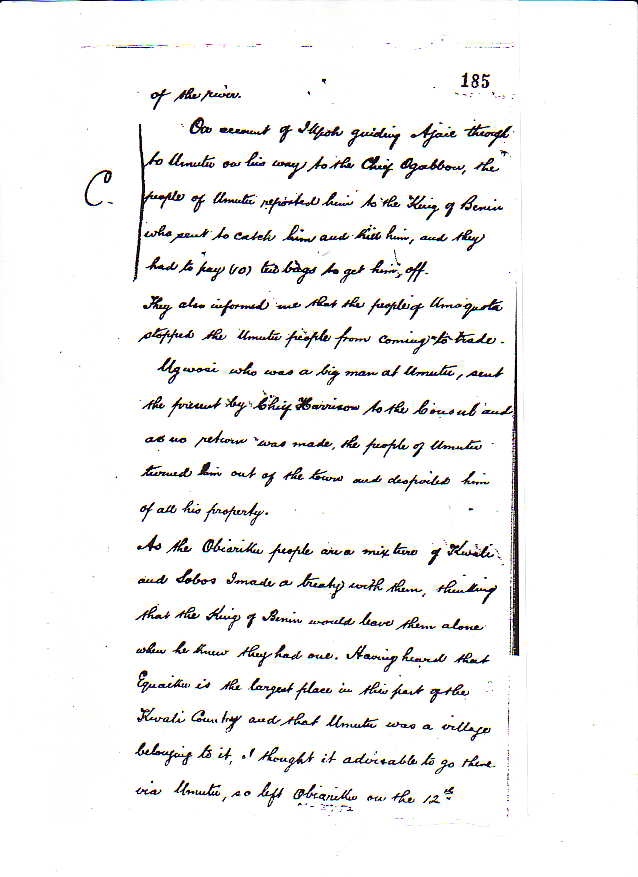 185
of the river.
On account of Ikpoh guiding Ajaie through
to Umutu on his way to the Chief Ogabbou, the
C. people of Umutu reported him to the King of Benin
who sent to catch him and kill him, and they
had to pay (10) ten bags to get him off.
They also informed me that the people of Umoquota
stopped the Umutu people from coming to trade.
Ugwosi who was a big man at Umutu, sent
the present by Chief Harrison to the Consul and
as no return was made, the people of Umutu
turned him out of the town and despoiled him
of all his property.
As the Obiariku people are a mixture of Kwali
and Sobos I made a treaty with them, thinking
that the King of Benin would leave them alone
when he knew they had one. Having heard that
Equaiku is the largest place in this part of the
Kwali Country and that Umutu was a village
belonging to it, I thought it advisable to go there
via Umutu, so left Obiariku on the 12th